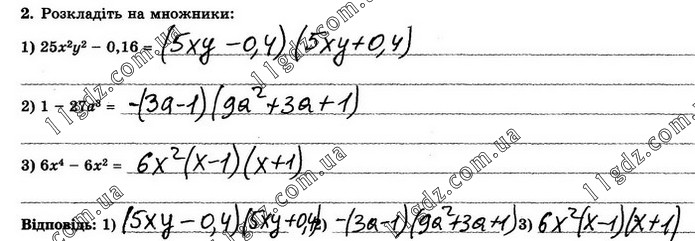 2. Розкладіть на множники:
1) 25x²y² − 0,16 = (5xy − 0,4)(5xy + 0,4)
2) 1 − 27a³ = −(3a−1)(9a²+3a+1)
3) 6x⁴ − 6x² = 6x²(x−1)(x+1)
Відповідь: 1) (5xy−0,4)(5xy+0,4) 2) −(3a−1)(9a²+3a+1) 3) 6x²(x−1)(x+1)
11gdz.com.ua
11gdz.com.ua
11gdz.com.ua
11gdz.com.ua